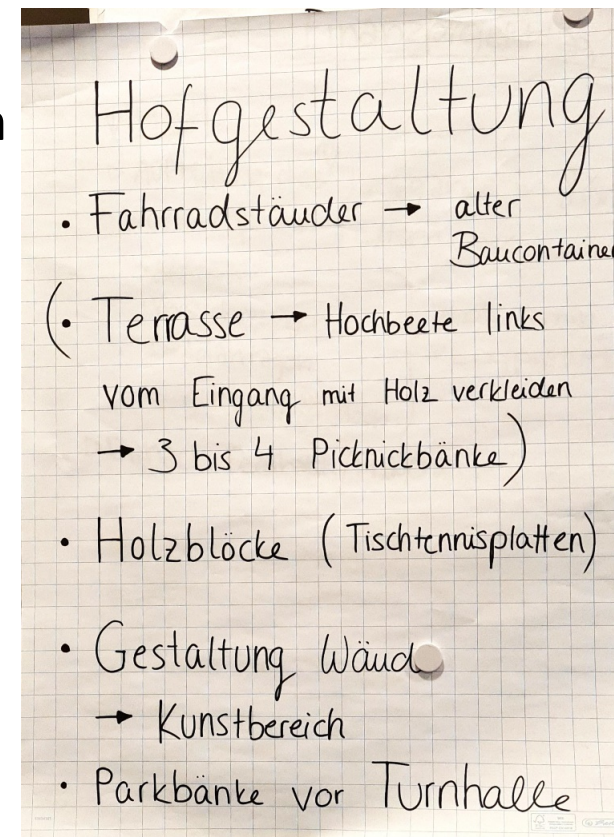 n
Hofgestaltung
• Fahrradständer → alter
Baucontainer
(• Terrasse → Hochbeete links
vom Eingang mit Holz verkleiden
→ 3 bis 4 Picknickbänke)
• Holzblöcke (Tischtennisplatten)
• Gestaltung Wänd
→ Kunstbereich
• Parkbänke vor Turnhalle